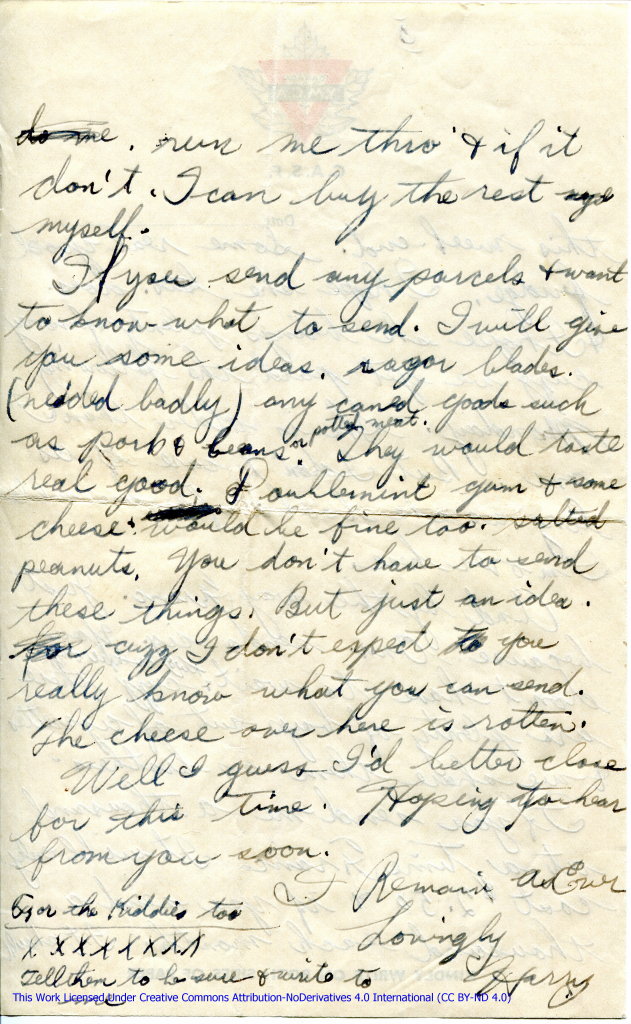 5
to me. run me thro' & if it
don't. I can buy the rest
myself.
If you send any parcels & want
to know what to send. I will give
you some ideas. razor blades.
(needed badly) any caned goods such
as pork & beans or potted meat. They would taste
real good. Doublemint gum & some
cheese & would be fine too. salted
peanuts. You don't have to send
these things. But just an idea.
for cuzz I don't expect to you
really know what you can send.
The cheese over here is rotten.
Well I guess I'd better close
for this time. Hoping to hear
from you soon.
I Remain as Ever
Lovingly
Harry
For the Kiddies too
X X X X X X X X
Tell them to be sure & write to
me
This Work Licensed Under Creative Commons Attribution-NoDerivatives 4.0 International (CC BY-ND 4.0)